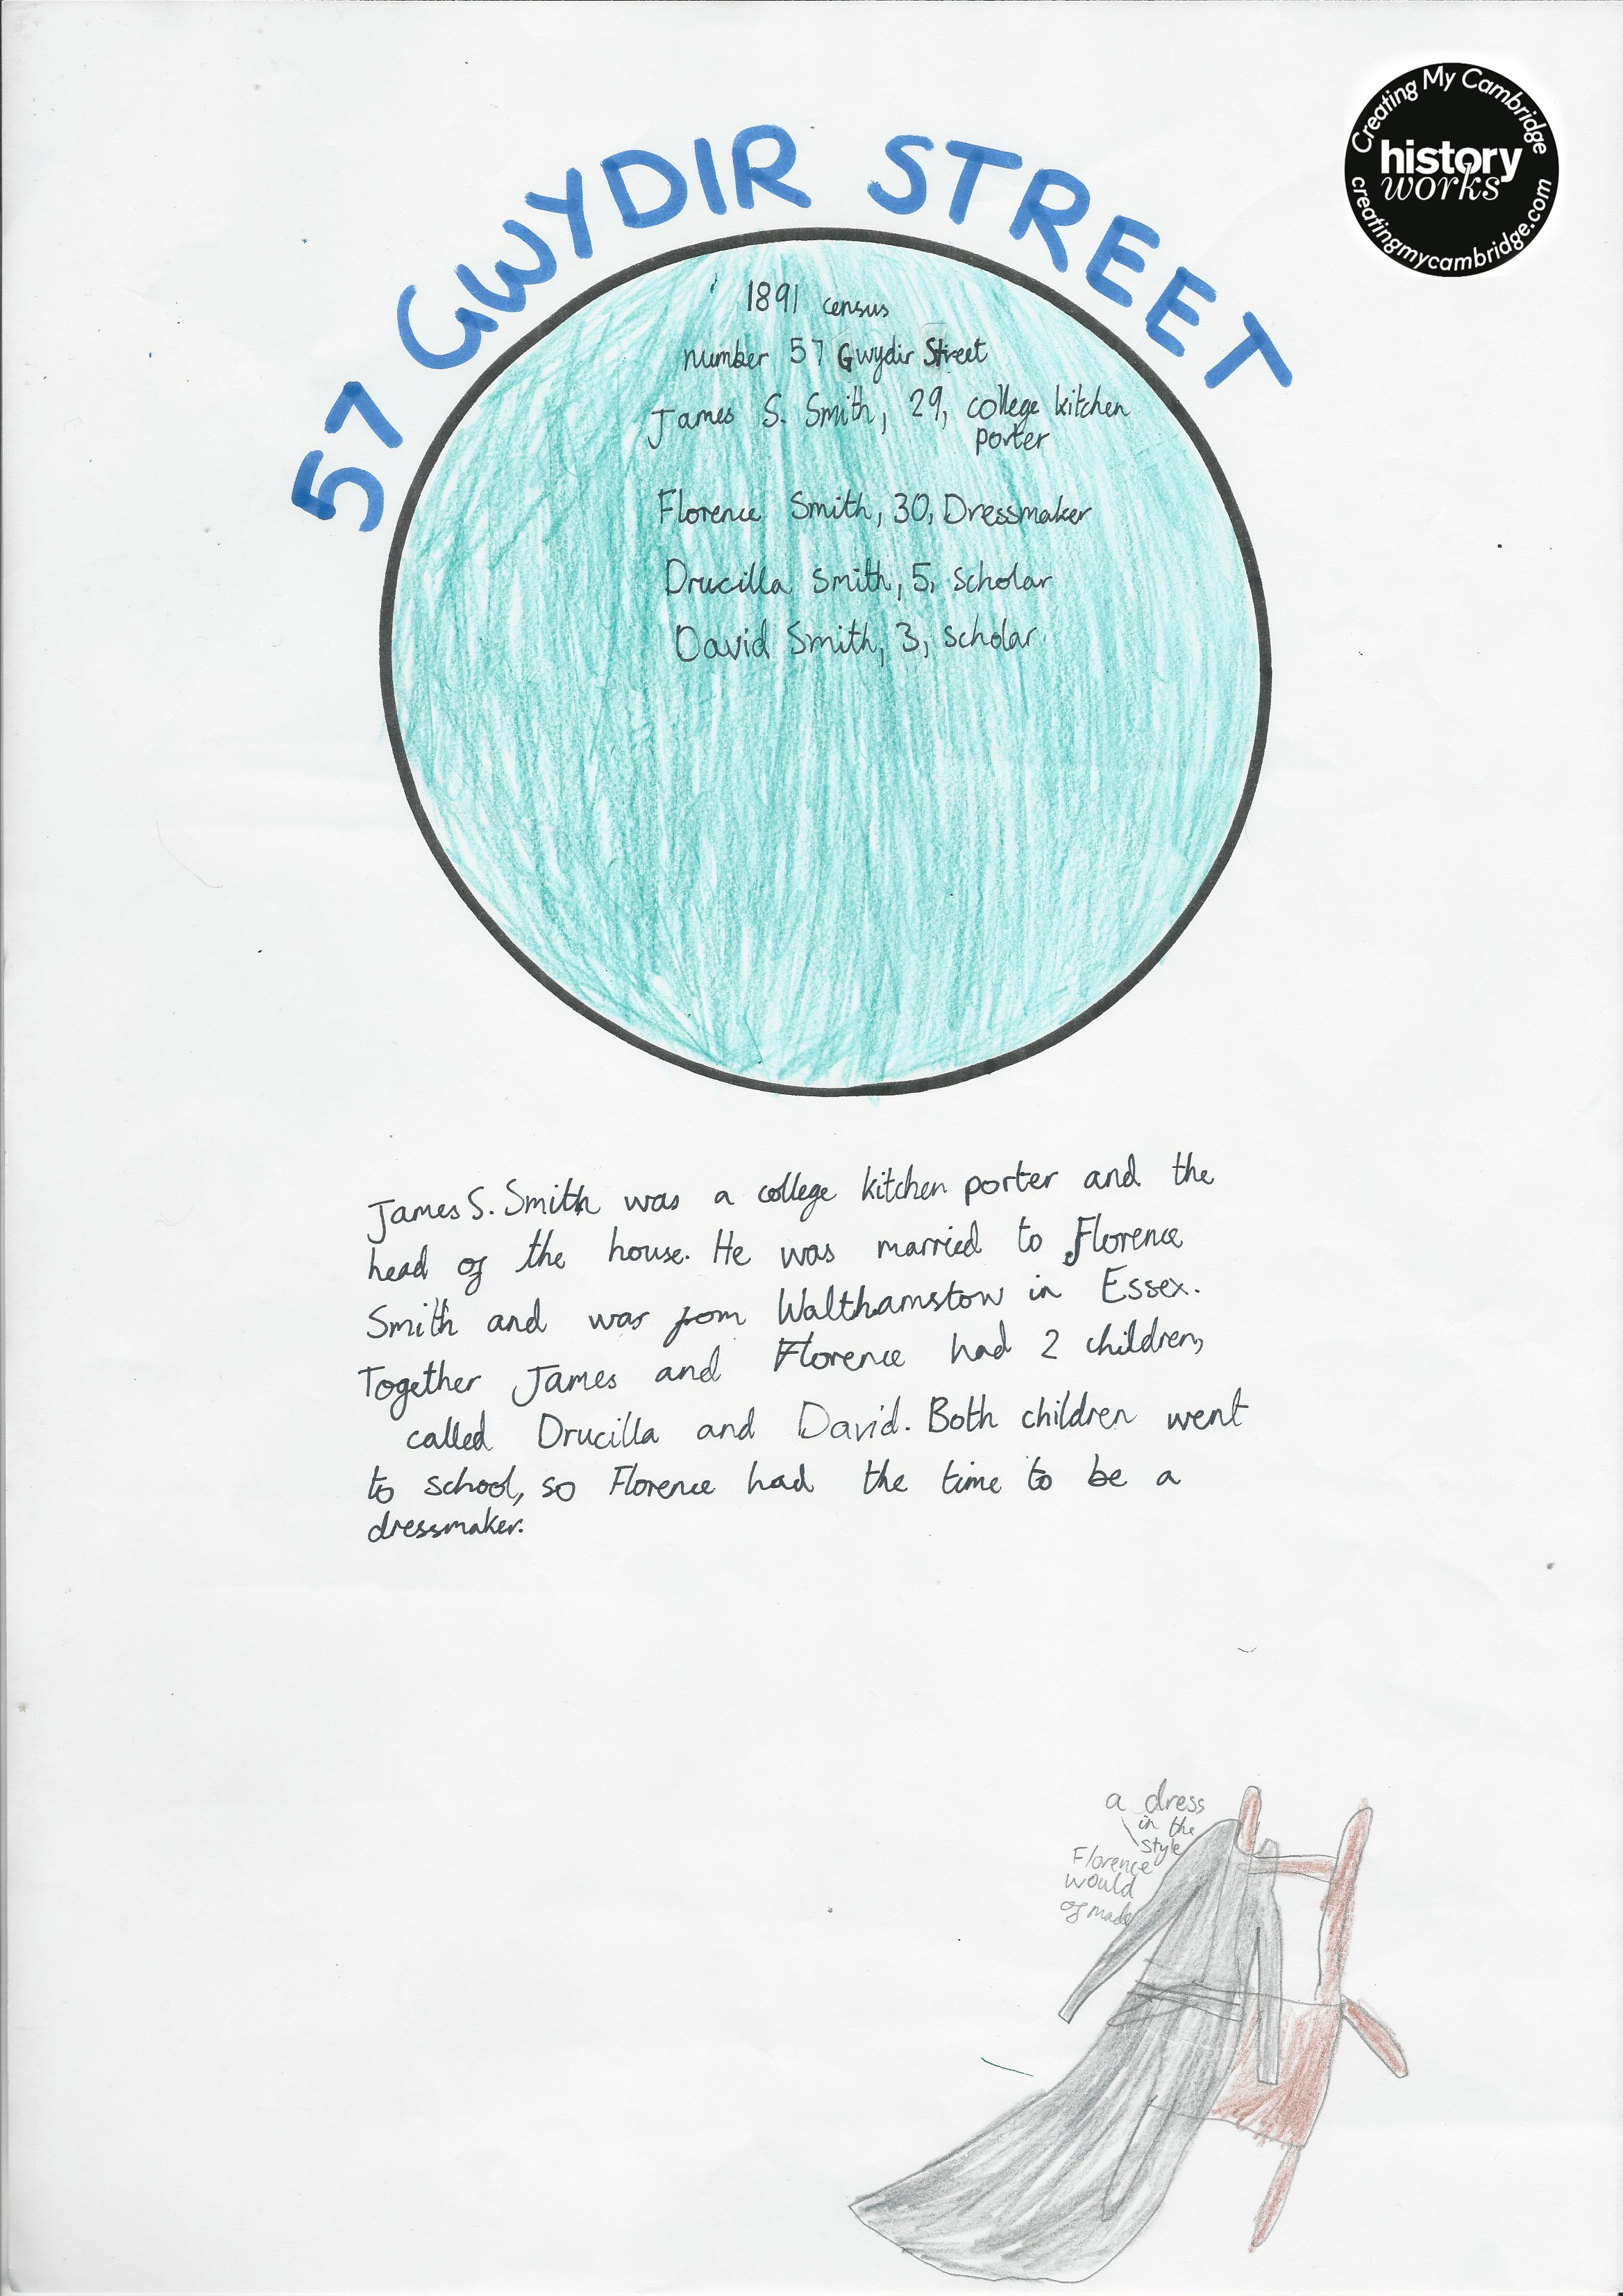 Creating My Cambridge
history
works
creatingmycambridge.com
57 GWYDIR STREET
1891 census
number 57 Gwydir Street
James S. Smith, 29, college kitchen
porter
Florence Smith, 30, Dressmaker
Drucilla Smith, 5, scholar
David Smith, 3, scholar.
James S. Smith was a college kitchen porter and the
head of the house. He was married to Florence
Smith and was from Walthamstow in Essex.
Together James and Florence had 2 children,
called Drucilla and David. Both children went
to school, so Florence had the time to be a
dressmaker.
a dress
in the
style
Florence
would
of made